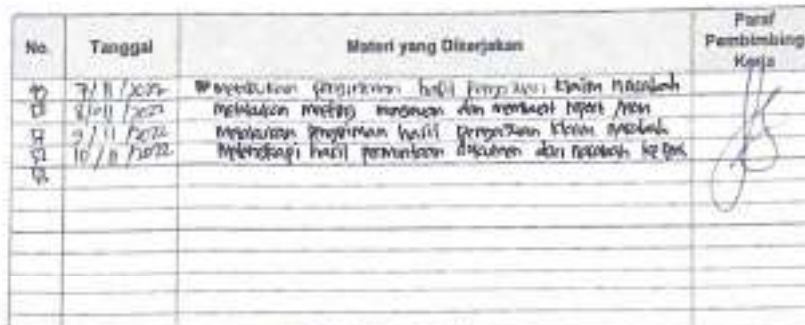 No. Tanggal Materi yang Dikerjakan Paraf Pembimbing Kerja
7/11/2022 Melakukan pengiriman hasil pengajuan klaim nasabah
8/11/2022 melakukan meeting dan membuat report
9/11/2022 Melakukan pengiriman hasil pengajuan klaim nasabah
10/11/2022 Melengkapi hasil permintaan dokumen dari nasabah ke